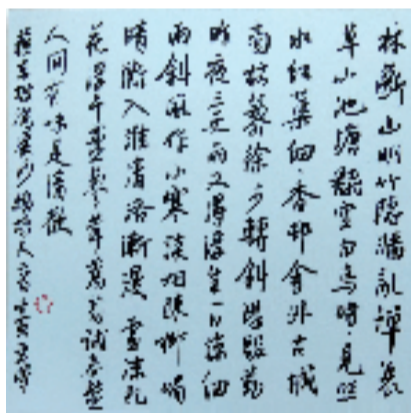 林斷山明竹隱牆亂蟬衰
草小池塘翻空白鳥時見照
水紅蕖細香邨舍外古城
旁杖藜徐步轉斜陽殷勤
昨夜三更雨又得浮生一日涼細
雨斜風作小寒淡烟疎柳媚
晴灘入淮清洛漸漫雪沫乳
花浮午盞蓼茸蒿筍試春盤
人間有味是清歡